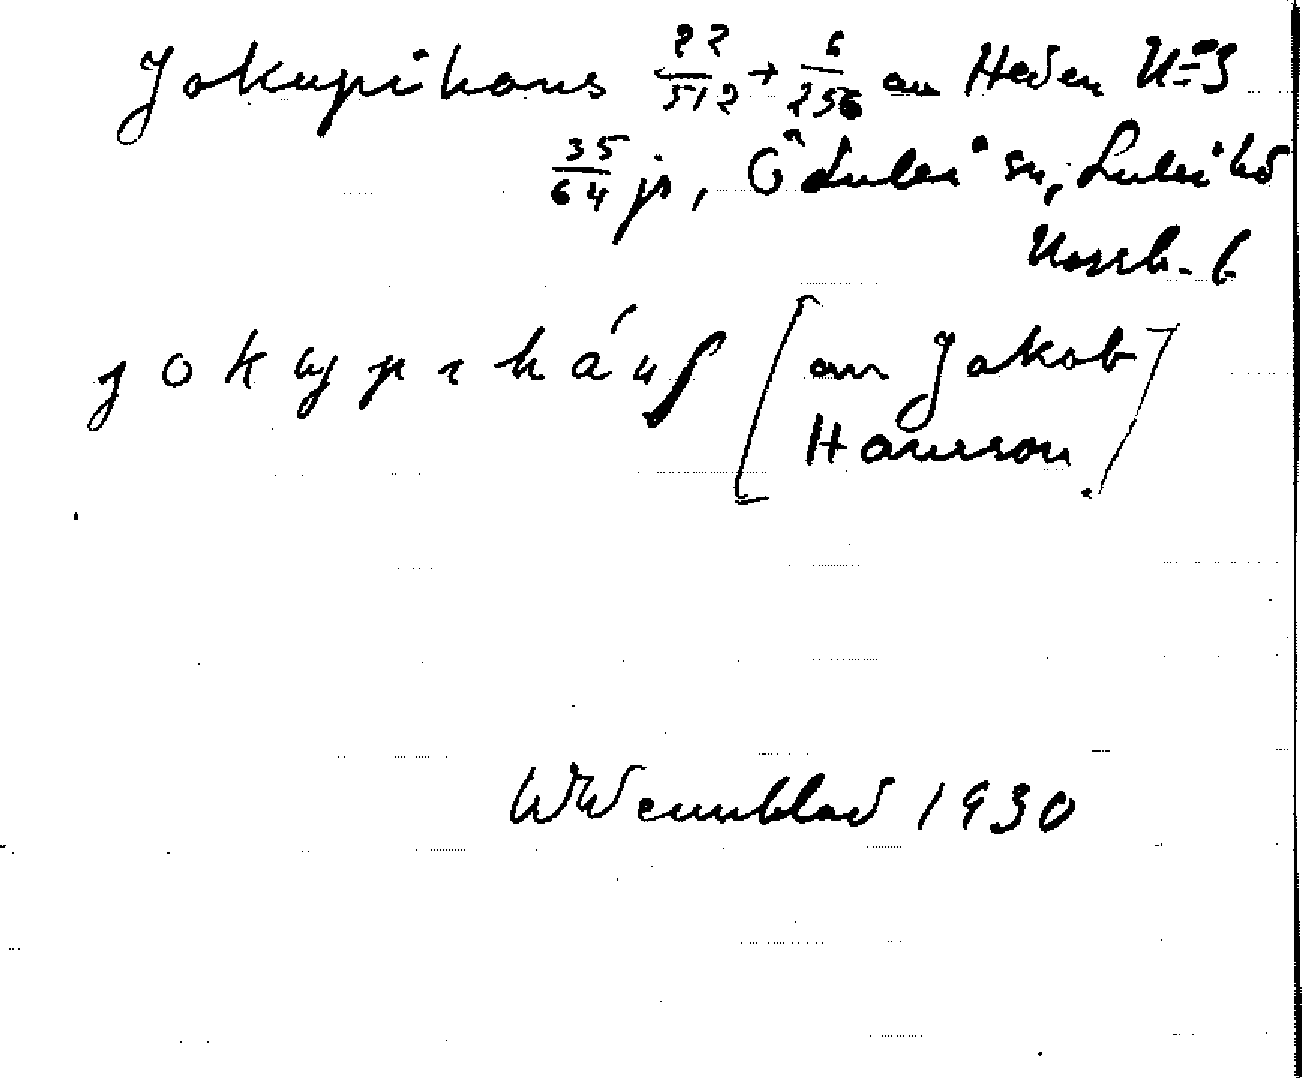 Jokupihans 22/512 + 6/256 av Heden N:o 3
35/64 js, Ö Luleå sn, Luleå hd
Norrb.
jokypihá
[av Jakob
Hansson]
W Wennblad 1930